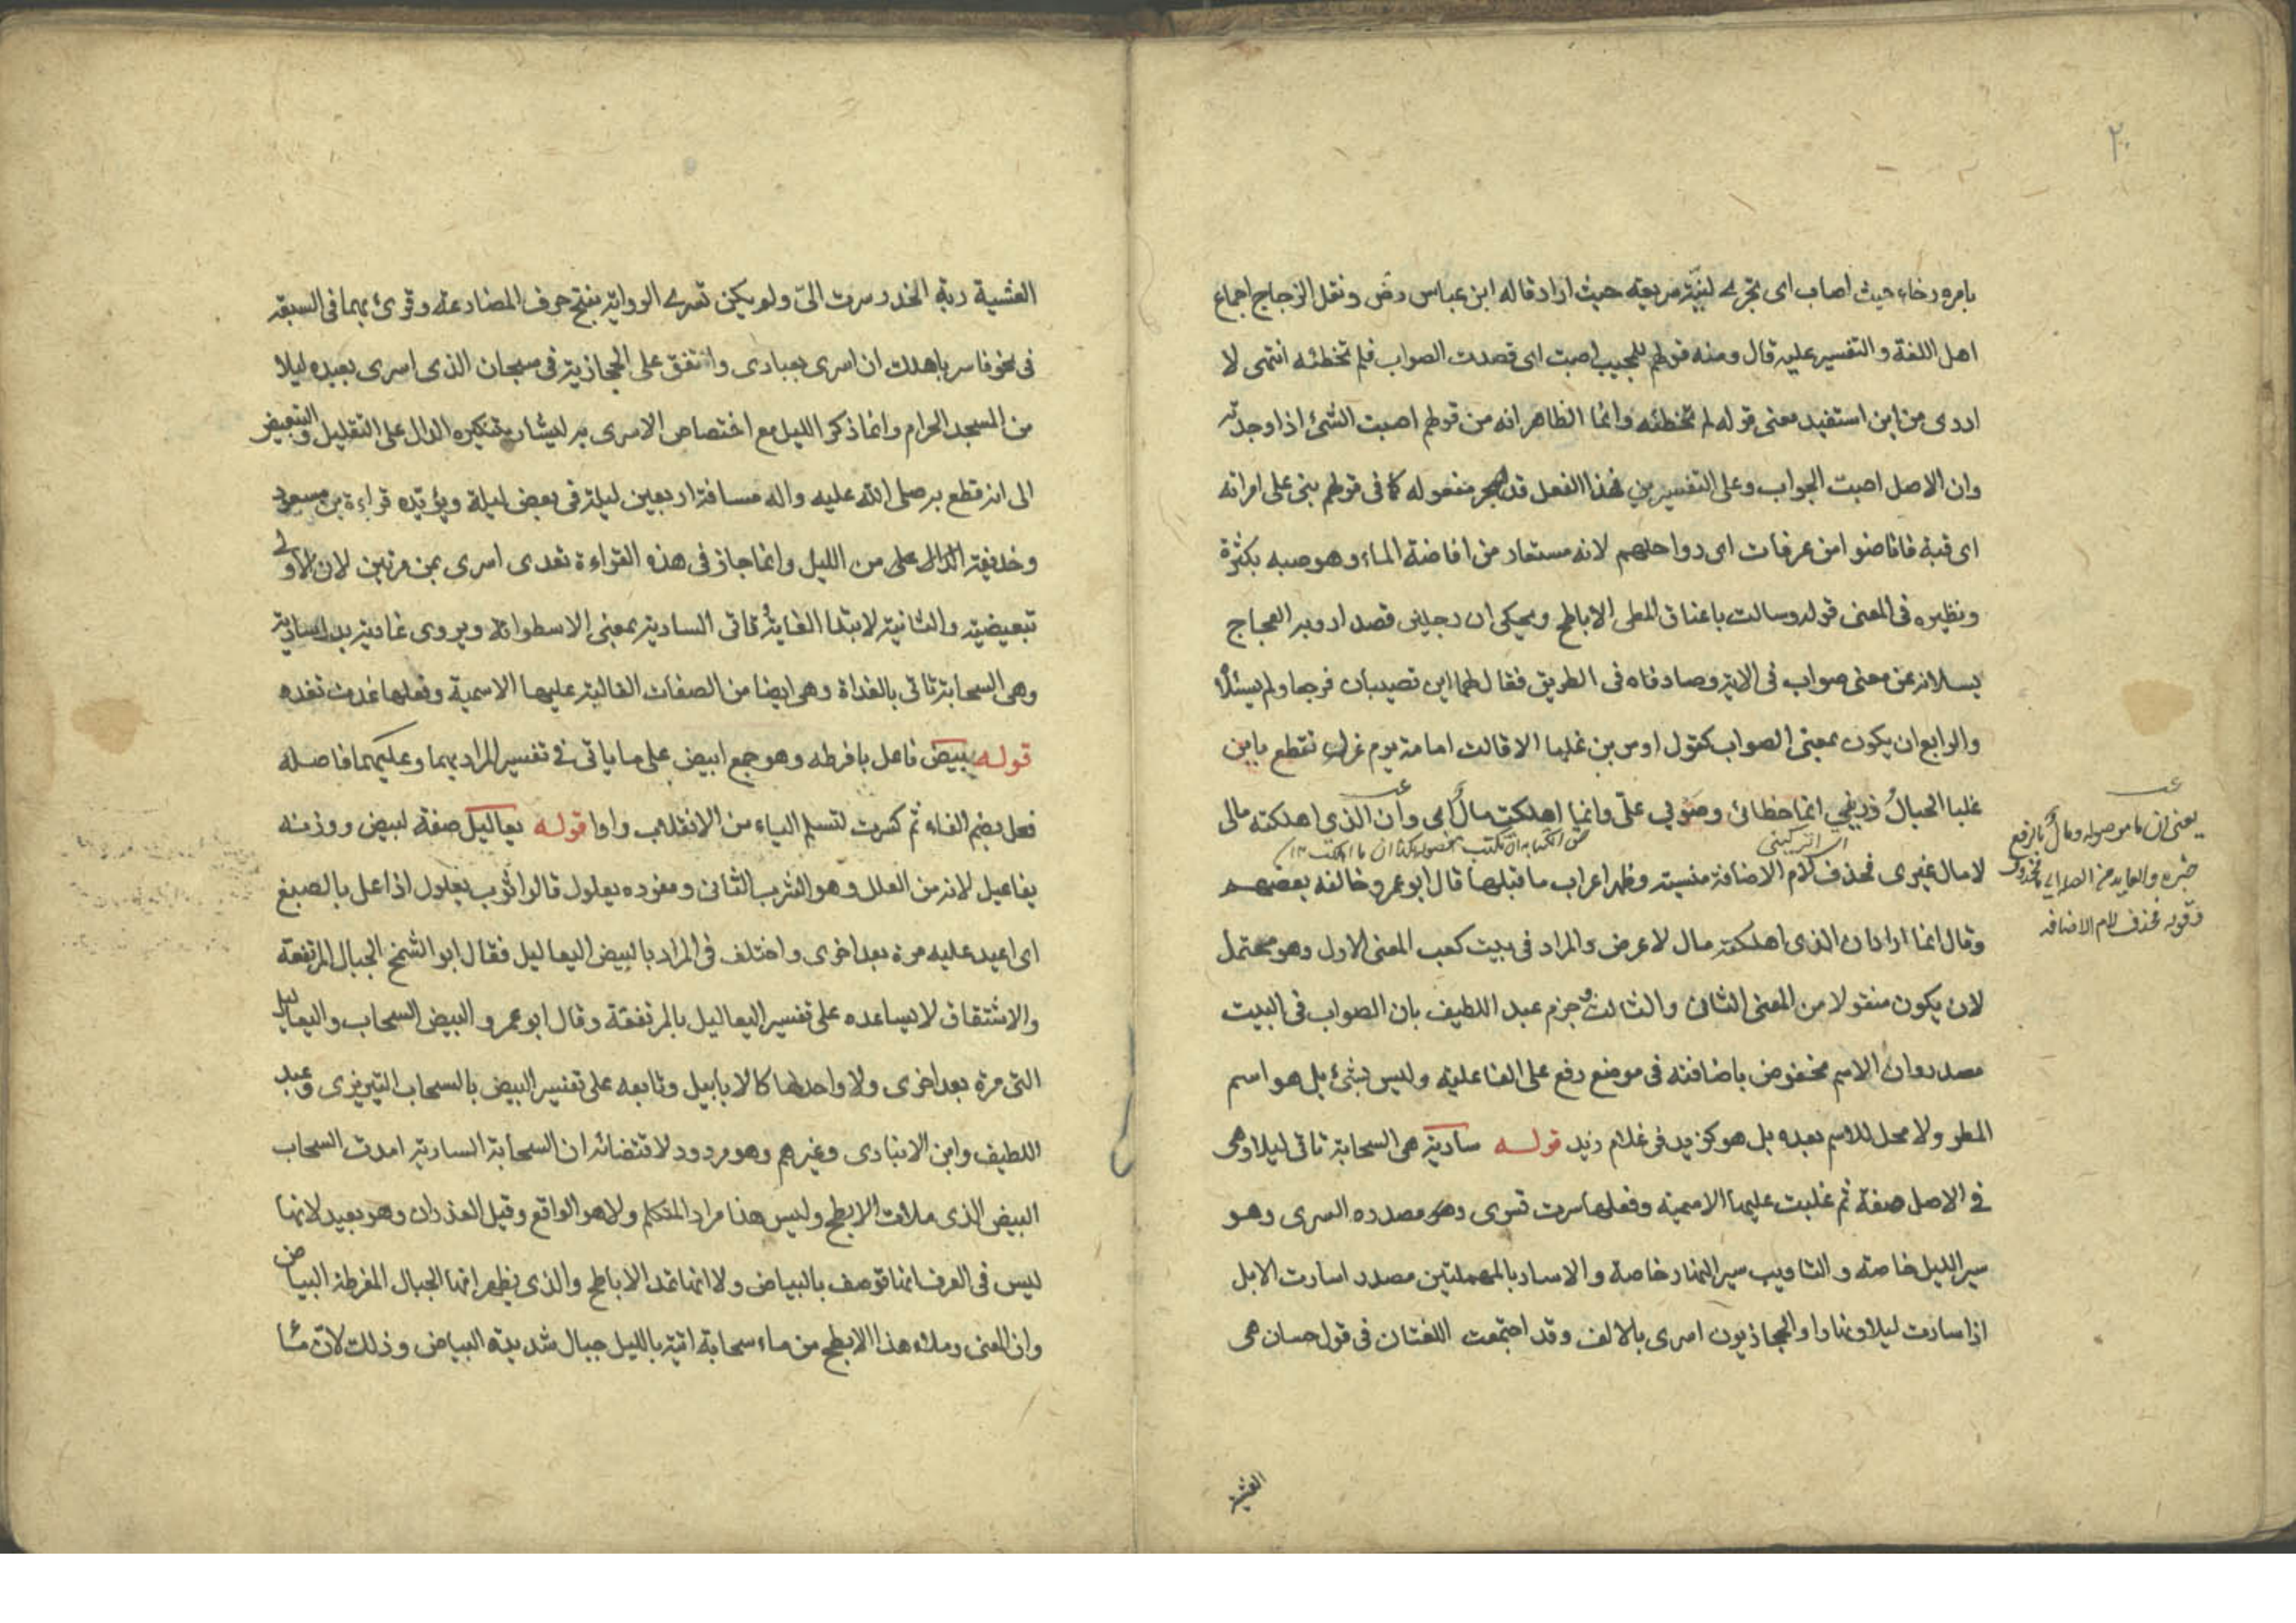 ٢٠
بامره رخاء حيث اصاب اى تجرى لينة سريعة حيث اراد قاله ابن عباس رض ونقل الزجاج اجماع
اهل اللغة والتفسير عليه قال ومنه قولهم للمجيب اصبت اى قصدت الصواب فلم تخطئه انتهى لا
ادرى من اين استفيد معنى قوله لم تخطئه وانما الظاهر انه من قولهم اصبت الشئ اذا وجدته
وان الاصل اصبت الجواب وعلى التفسيرين فهذا الفعل قد هجر مفعوله كما فى قولهم بنى على امراته
اى قبة فافاضوا من عرفات اى رواحلهم لانه مستعار من افاضة الماء وهو صبه بكثرة
ونظيره فى المعنى قوله وسالت باعناق المطى الاباطح ويحكى ان رجلين قصدا روبة العجاج
يسلانه عن معنى صواب فى الاية وصادفاه فى الطريق فقال لهما اين تصيبان فرجعا ولم يسئلا
والرابع ان يكون بمعنى الصواب كقول اوس بن غلبا الا قالت امامة يوم غول تقطع بابن
غلبا الحبال ذرينى انما خطائى وصوبى علىّ وانما اهلكت مالٌ اى وان الذى اهلكته مالى
لا مال غيرى فحذف كلام الاضافة منسية وظهر اعراب ما قبلها قال ابو عمرو خالفه بعضهم
وقال انما اراد ان الذى اهلكته مال لا عرض والمراد فى بيت كعب المعنى الاول وهو محتمل
لان يكون منقولا من المعنى الثانى والثالث وجزم عبد اللطيف بان الصواب فى البيت
مصدر وان الاسم مخفوض باضافته فى موضع رفع على الفاعلية وليس بشئ بل هو اسم
المطر ولا محل للاسم بعده بل هو كزيد فى غلام زيد قوله سارية هى السحابة تاتى ليلا وهى
فى الاصل صفة ثم غلبت عليها الاسمية وفعلها سرت تسرى وهو مصدره السرى وهو
سير الليل خاصة والتاويب سير النهار خاصة والاساد بالمهملتين مصدر اسارت الابل
اذا سارت ليلا ونهارا والحجازيون اسرى بالالف وقد اجتمعت اللغتان فى قول حسان حى
العشية
يعنى ان ما موصوله ومالٌ بالرفع
خبره والعايد من الصله اى محذوف
وقوله بحذف لام الاضافه
العشية ربة الخدر سرت الىّ ولم يكن تسرى الرواية بفتح حرف المضارعة وقرئ بهما فى السبعة
فى نحو فاسر باهلك ان اسرى بعبادى واتفق على الحجازية فى سبحان الذى اسرى بعبده ليلا
من المسجد الحرام وانما ذكر الليل مع اختصاص الاسرى به ليشار بتنكيره الدال على التقليل والتبعيض
الى انه قطع به صلى الله عليه واله مسافة اربعين ليلة فى بعض ليلة ويؤيده قراءة بن مسعود
وحذيفة الدال على من الليل وانما جاز فى هذه القراءة تعدى اسرى بمن مرتين لان الاولى
تبعيضية والثانية لابتدا الغاية تاتى السارية بمعنى الاسطوانة ويروى غادية بدل سارية
وهى السحابة تاتى بالغداة وهى ايضا من الصفات الغالبة عليها الاسمية وفعلها غدت تغده
قوله بيض فاعل بافرطه وهو جمع ابيض على ما ياتى فى تفسير المراد بهما وعليهما فاصله
فعل بضم الفاء ثم كسرت لتسلم الياء من الانقلاب واوا قوله يعاليل صفة لبيض ووزنه
يفاعيل لانه من العلل وهو الشرب الثانى ومفرده يعلول قالوا ثوب يعلول اذا عل بالصبغ
اى اعيد عليه مرة بعد اخرى واختلف فى المراد بالبيض اليعاليل فقال ابو الشمخ الجبال المرتفعة
والاشتقاق لا يساعده على تفسير اليعاليل بالمرتفعة وقال ابو عمرو البيض السحاب واليعاليل
التى مرة بعد اخرى ولا واحد لها كالابابيل وتابعه على تفسير البيض بالسحاب التبريزى وعبد
اللطيف وابن الانبارى وغيرهم وهو مردود لاقتضائه ان السحابة السارية امدت السحاب
البيض الذى ملات الابطح وليس هذا مراد المتكلم ولا هو الواقع وقيل الغدران وهو بعيد لانها
ليس فى العرف انها توصف بالبياض ولا انها تمد الاباطح والذى يظهر انها الجبال المفرطة البياض
وان المعنى وملاء هذا الابطح من ماء سحابة اتية بالليل جبال شديدة البياض وذلك لان ما